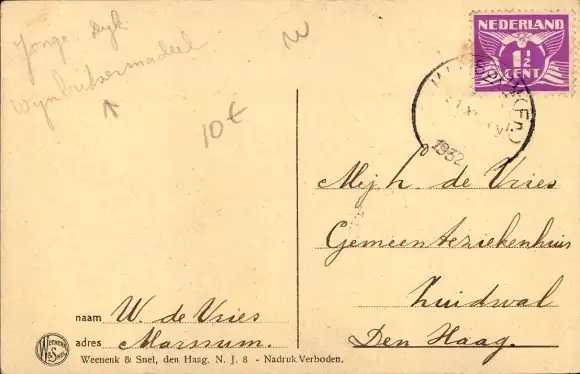 Jonge Dyk
N
10 €
NEDERLAND
1½
CENT
(Fr.)
1932
Mej. h. de Vries
Gemeenteziekenhuis
Zuidwal
Den Haag.
naam W. de Vries
adres Marssum.
WEENENK
& SNEL
Weenenk & Snel, den Haag. N. J. 8 - Nadruk Verboden.